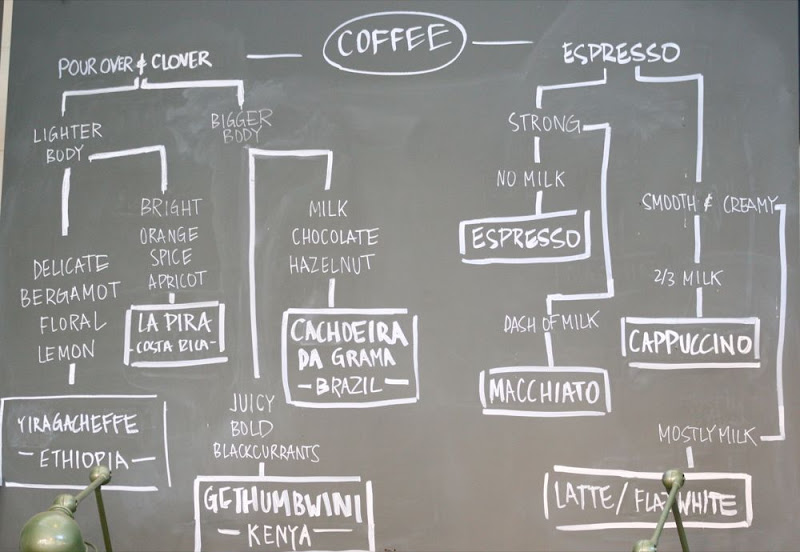 COFFEE
POUR OVER & CLOVER
LIGHTER
BODY
DELICATE
BERGAMOT
FLORAL
LEMON
YIRAGACHEFFE
- ETHIOPIA -
BRIGHT
ORANGE
SPICE
APRICOT
LA PIRA
COSTA RICA -
BIGGER
BODY
JUICY
BOLD
BLACKCURRANTS
GETHUMBWINI
- KENYA -
MILK
CHOCOLATE
HAZELNUT
CACHOEIRA
DA GRAMA
- BRAZIL -
ESPRESSO
STRONG
NO MILK
ESPRESSO
DASH OF MILK
MACCHIATO
SMOOTH & CREAMY
2/3 MILK
CAPPUCCINO
MOSTLY MILK
LATTE/ FLAT WHITE